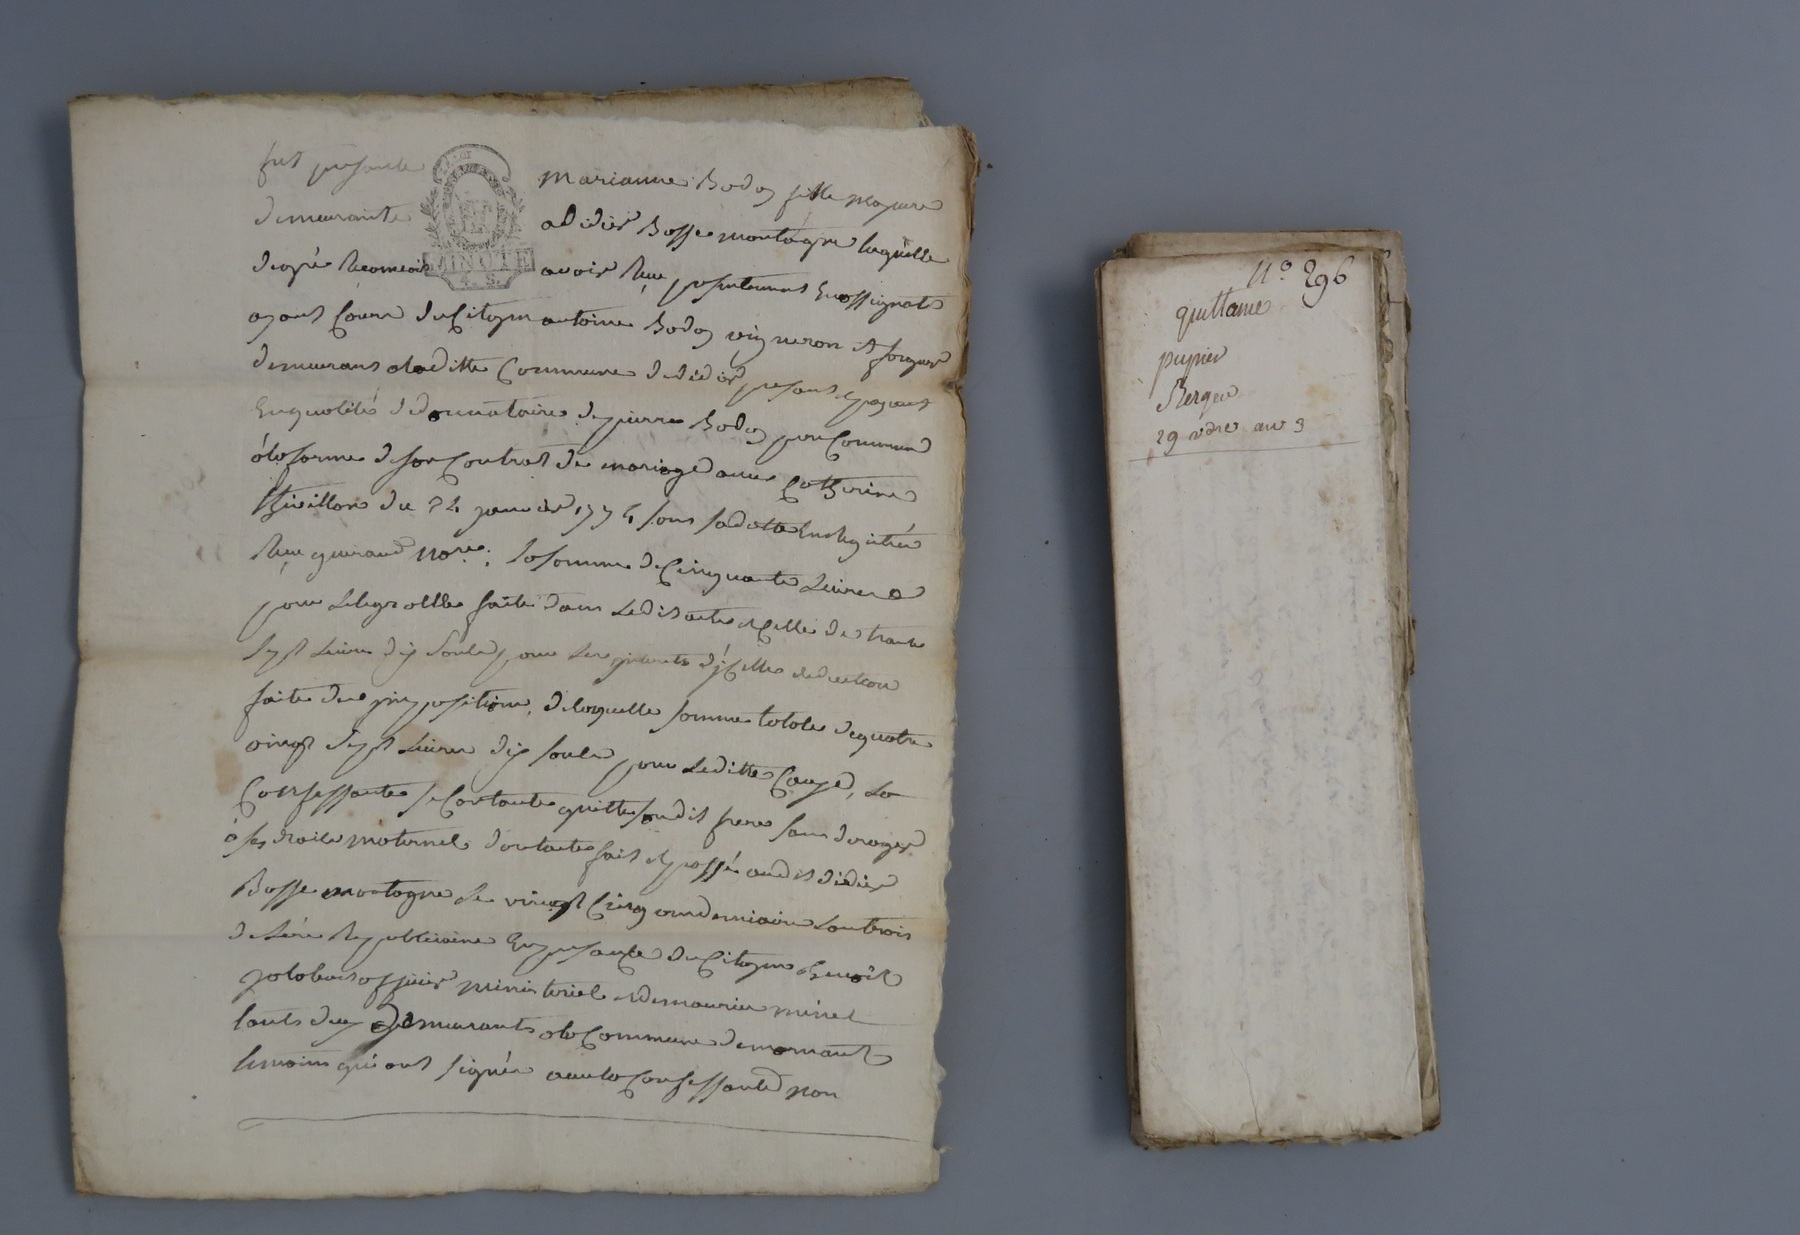 fut presente Marianne Bodoy fille majeure
demeurante a didier Bosse montagne laquelle
de gré Reconnois avoir Reçu presentement En assignats
MINUTE
4. S.
ayant Cours du Citoyen antoine Bodoy vigneron et forgeur
demeurant a laditte Commune de didier present et payant
En qualités de donnataire de pierre Bodoy pere Commun
à la forme de son Contrat de mariage avec Catherine
Thivillon du 24 janvier 1774 sous sa datte Enregistré
Reçu guiraud Nore. la somme de Cinquante Livres
pour Le Legs a Elle faite dans Ledit acte et Celle de trante
sept Livres dix Sould pour Les interets d'jCelle deduction
faite des impositions, de laquelle somme totale de quatre
vingt sept Livres dix sould pour Leditte Cause, La
Confessante se Contante quitte sondit frere sans deroger
à ses droits maternel dont acte fait et passé audit didier
Bosse montagne Le vingt Cinq vendemiaire L'an trois
de L'ére Republicaine En presance du Citoyen Benoît
officier ministeriel et de maurice
touts deux Demeurants a la Commune de mornant
temoins qui ont signés avec la Confessante non
N.o 296
quittance
pupier
Berger
29 vdre an 3